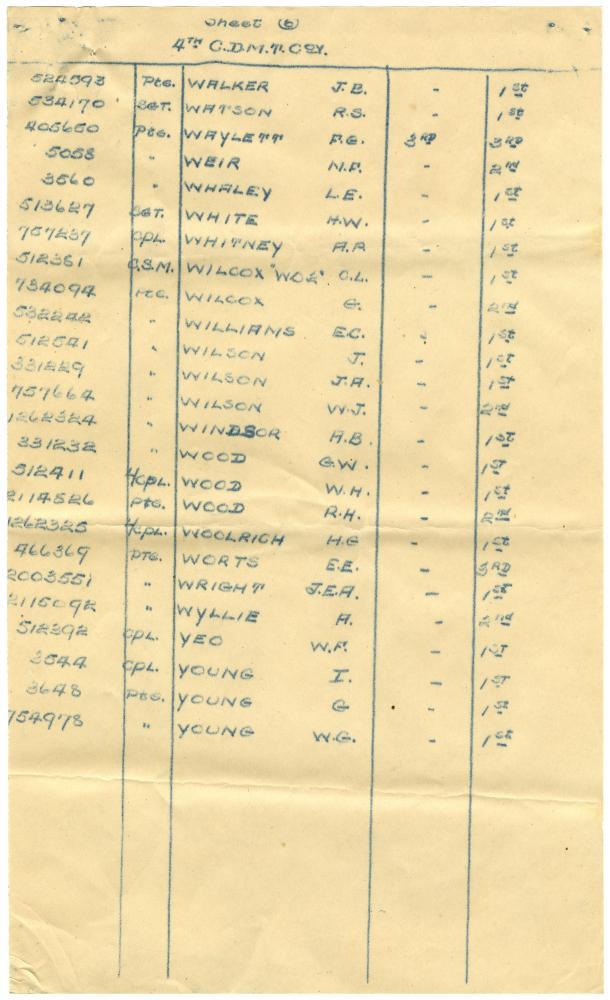 Sheet (6)
4TH C.D.M.T. COY.
524593 Pte. WALKER J.B. - 1st
534170 SGT. WATSON R.S. - 1st
405650 Pte. WAYLETT F.G. 3RD 3RD
5058 " WEIR M.F. - 2nd
3560 " WHALEY L.E. - 1st
513627 SGT. WHITE H.W. - 1st
757237 CPL. WHITNEY A.R - 1st
512351 C.S.M. WILCOX "WO2" C.L. - 1st
734094 Pte. WILCOX G. - 2nd
532242 " WILLIAMS E.C. - 1st
512541 " WILSON J. - 1st
331229 " WILSON J.A. - 1st
757664 " WILSON W.J. - 2nd
1262324 " WINDSOR A.B. - 1st
331232 " WOOD G.W. - 1ST
512411 L/CPL. WOOD W.H. - 1st
2114526 Pte. WOOD R.H. - 2nd
1262325 L/CPL. WOOLRICH H.G - 1st
466369 PTE. WORTS E.E. - 3RD
2003551 " WRIGHT J.E.A. - 1st
2115092 " WYLLIE A. - 2nd
512392 CPL. YEO W.F. - 1ST
3544 CPL. YOUNG I. - 1ST
3648 Pte. YOUNG G - 1st
754978 " YOUNG W.G. - 1st